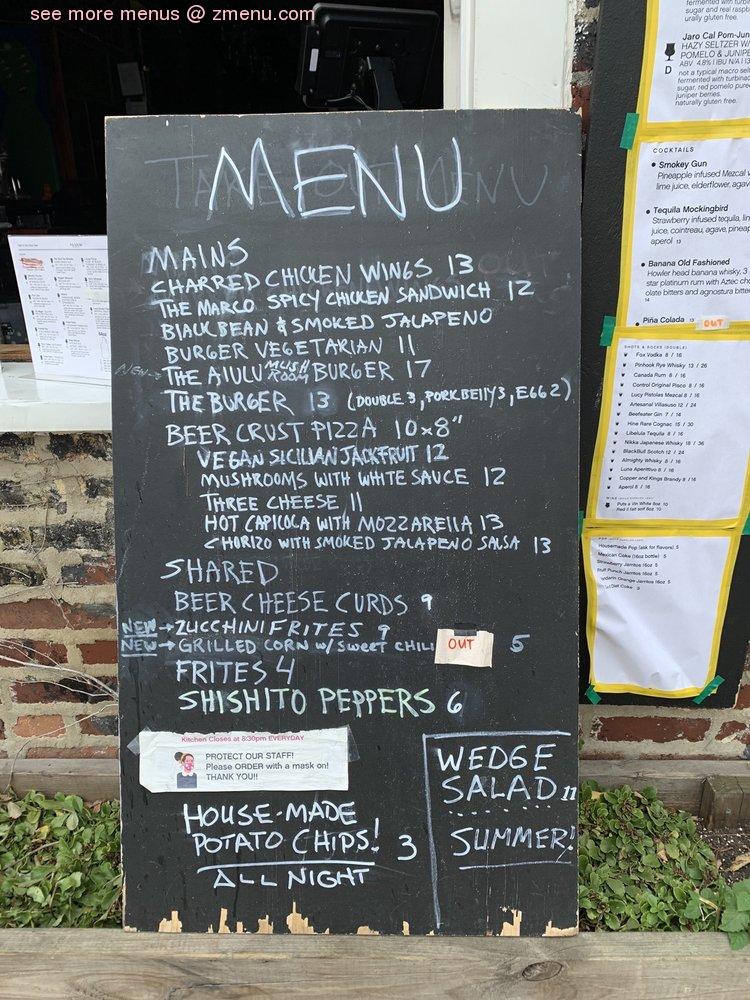 see more menus @ zmenu.com
MENU
MAINS
CHARRED CHICKEN WINGS 13
THE MARCO SPICY CHICKEN SANDWICH 12
BLACK BEAN & SMOKED JALAPENO
BURGER VEGETARIAN 11
NEW→ THE AIULU MUSHROOM BURGER 17
THE BURGER 13 (DOUBLE 3, PORKBELLY 3, EGG 2)
BEER CRUST PIZZA 10x8"
VEGAN SICILIAN JACKFRUIT 12
MUSHROOMS WITH WHITE SAUCE 12
THREE CHEESE 11
HOT CAPICOLA WITH MOZZARELLA 13
CHORIZO WITH SMOKED JALAPENO SALSA 13
SHARED
BEER CHEESE CURDS 9
NEW→ ZUCCHINI FRITES 9
NEW→ GRILLED CORN W/ SWEET CHILI OUT 5
FRITES 4
SHISHITO PEPPERS 6
Kitchen Closes at 8:30pm EVERYDAY
PROTECT OUR STAFF!
Please ORDER with a mask on!
THANK YOU!!
HOUSE-MADE
POTATO CHIPS! 3
ALL NIGHT
WEDGE
SALAD 11
SUMMER!
sugar and real raspb
urally gluten free.
Jaro Cal Pom-Jun
HAZY SELTZER W/
POMELO & JUNIPE
ABV 4.8% | IBU N/A | 13
D
not a typical macro sel
fermented with turbinad
sugar, red pomelo puree
juniper berries.
naturally gluten free.
COCKTAILS
Smokey Gun
Pineapple infused Mezcal
lime juice, elderflower, agav
Tequila Mockingbird
Strawberry infused tequila, lim
juice, cointreau, agave, pineap
aperol 13
Banana Old Fashioned
Howler head banana whisky, 3
star platinum rum with Aztec cho
olate bitters and agnostura bitte
14
Piña Colada 13 OUT
SHOTS & ROCKS (DOUBLE)
Fox Vodka 8 / 16
Pinhook Rye Whisky 13 / 26
Canada Rum 8 / 16
Control Original Pisco 8 / 16
Lucy Pistolas Mezcal 8 / 16
Artesanal Villasuso 12 / 24
Beefeater Gin 7 / 14
Hine Rare Cognac 15 / 30
Libelula Tequila 8 / 16
Nikka Japanese Whisky 18 / 36
BlackBull Scotch 12 / 24
Almighty Whisky 8 / 16
Luna Aperitivo 8 / 16
Copper and Kings Brandy 8 / 16
Aperol 8 / 16
Puts a Vin White 8oz 10
Red il fait soif 8oz 10
Housemade Pop (ask for flavors) 5
Mexican Coke (16oz bottle) 5
Strawberry Jarritos 16oz 5
Fruit Punch Jarritos 16oz 5
Mandarin Orange Jarritos 16oz 5
Diet Coke 3